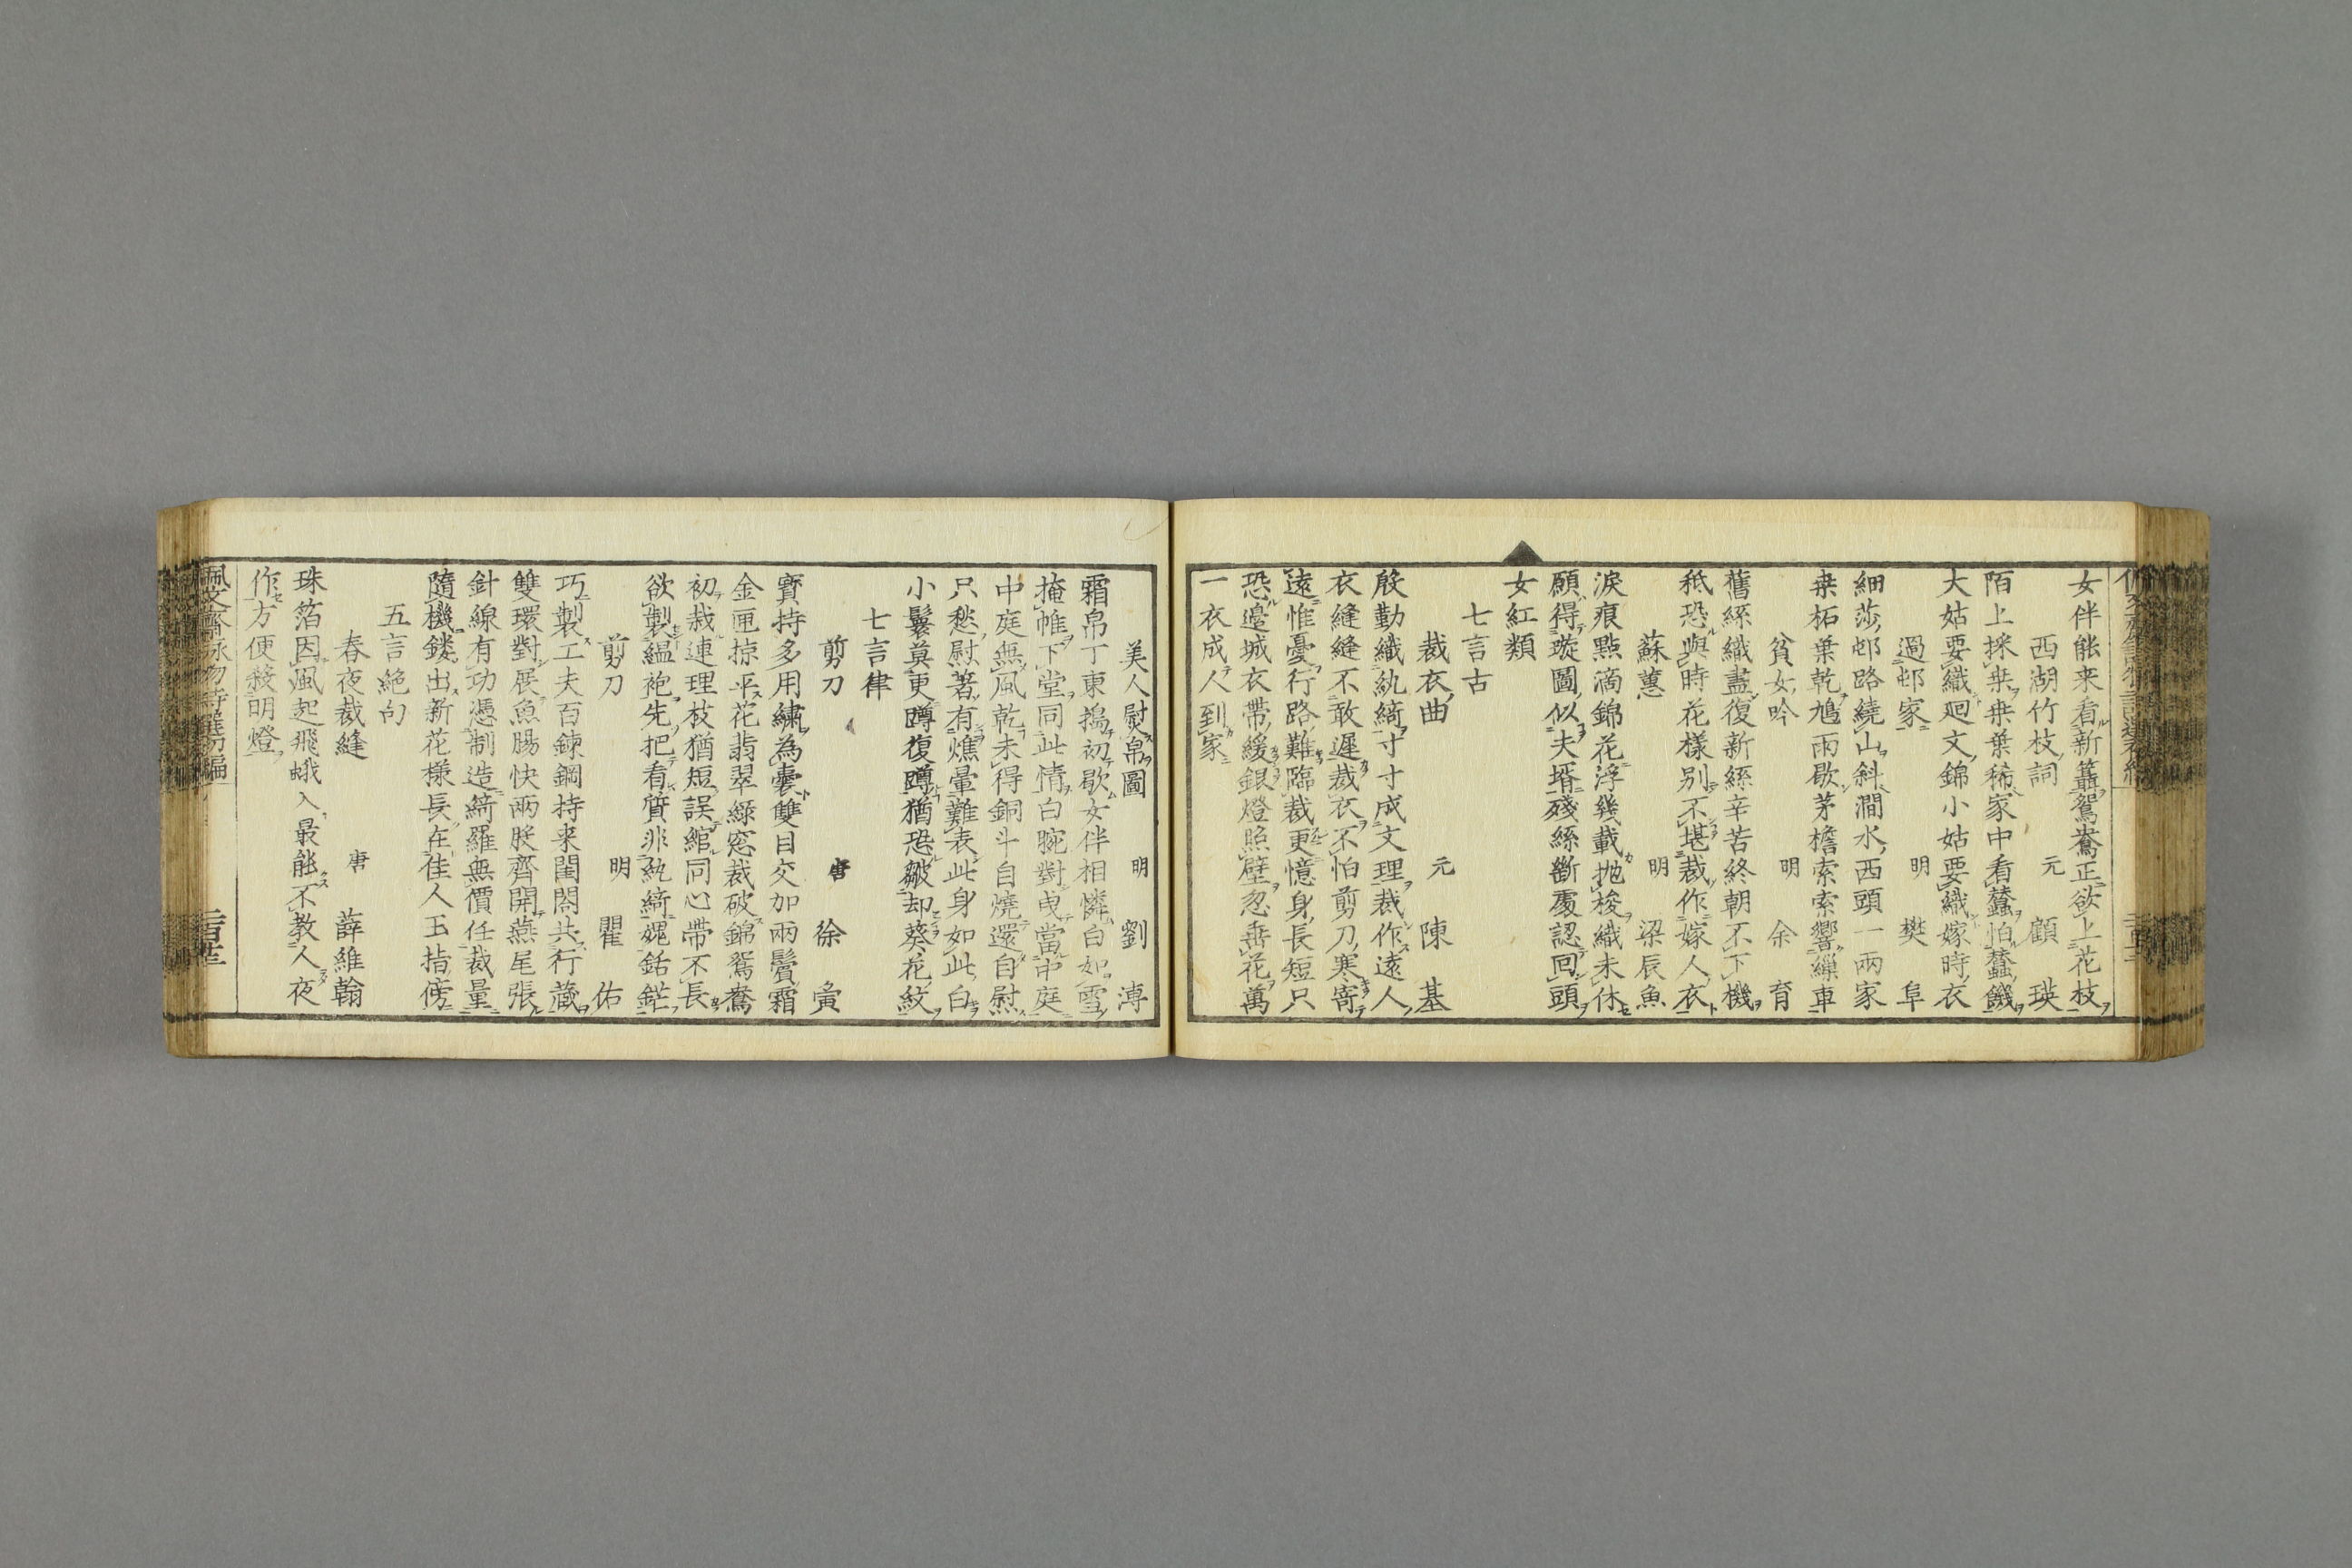 女伴能来看新簋鴛鴦正欲上花枝
西湖竹枝詞 元 顧瑛
陌上採桒桒葉稀家中看蠶怕蠶饑
大姑要織廻文錦小姑要織嫁時衣
過邨家 明 樊阜
細莎邨路繞山斜澗水西頭一兩家
桒柘葉乾鳩雨歇茅檐索索響繅車
貧女吟 明 余育
舊絲織盡復新絲辛苦終朝不下機
秪恐與時花樣别不堪裁作嫁人衣
蘇蕙 明 梁辰魚
淚痕點滴錦花浮幾載抛梭織未休
願得璇圖似夫壻殘絲斷處認回頭
女紅類
七言古
裁衣曲 元 陳基
殷勤織紈綺寸寸成文理裁作遠人
衣縫縫不敢遲裁衣不怕剪刀寒寄
遠惟憂行路難臨裁更憶身長短只
恐邉城衣帶緩銀燈照壁忽垂花萬
一衣成人到家
美人熨帛圖 明 劉溥
霜帛丁東搗初歇女伴相憐白如雪
掩帷下堂同此情白腕對曵當中庭
中庭無風乾未得銅斗自燒還自熨
只愁熨著有燋暈難表此身如此白
小鬟莫更蹲復蹲猶恐皺却葵花紋
七言律
剪刀 唐 徐寅
寳持多用繡為囊雙日交加兩鬢霜
金匣掠平花翡翠綠窓裁破錦鴛鴦
初裁連理枝猶短誤綰同心帶不長
欲製縕袍先把看質非紈綺媿銛鋩
剪刀 明 瞿佑
巧製工夫百鍊鋼持来閨閤共行藏
雙環對展魚腸快兩股齊開燕尾張
針線有功憑制造綺羅無價任裁量
隨機鏤出新花樣長在佳人玉指傍
五言絶句
春夜裁縫 唐 薛維翰
珠箔因風起飛蛾入最能不教人夜
作方便殺明燈
佩文齋詠物詩選初編